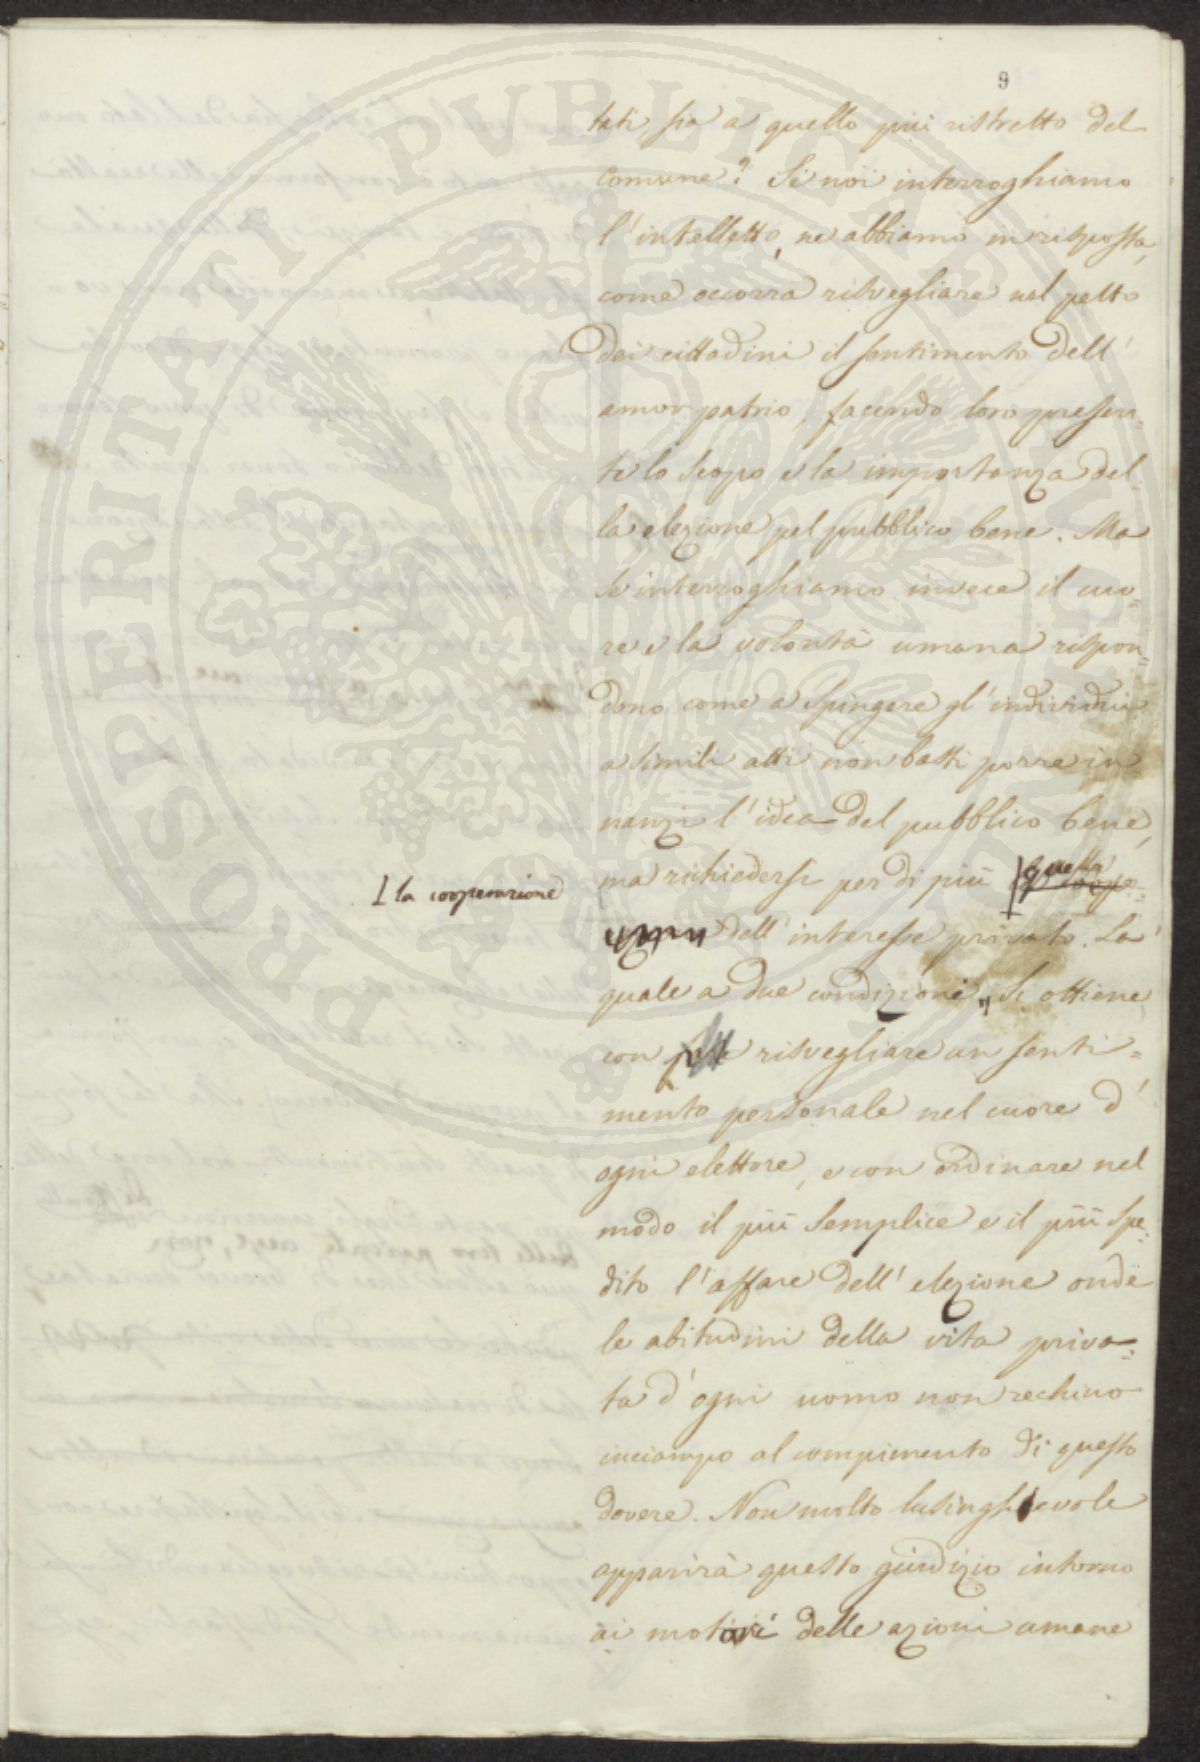 9
tati, sia a quello più ristretto del
comune? Se noi interroghiamo
l'intelletto, ne abbiamo in risposta,
come occorra risvegliare nel petto
dei cittadini il sentimento dell'
amor patrio, facendo loro presen=
te lo scopo e la importanza del=
la elezione pel pubblico bene. Ma
se interroghiamo invece il cuo=
re e la volontà umana rispon=
dono come a spingere gl'individui
a simili atti non basti porre in=
nanzi l'idea del pubblico bene,
ma richiedersi per di più quella
la cooperazione
dell'interesse privato. La
quale a due condizioni, si ottiene
con risvegliare un senti=
mento personale nel cuore d'
ogni elettore, e con ordinare nel
modo il più semplice e il più spe=
dito l'affare dell'elezione onde
le abitudini della vita priva=
ta d'ogni uomo non rechino
inciampo al compimento di questo
dovere. Non molto lusinghievole
apparirà questo giudizio intorno
ai motivi delle azioni umane
PROSPERITATI PVBLICAE